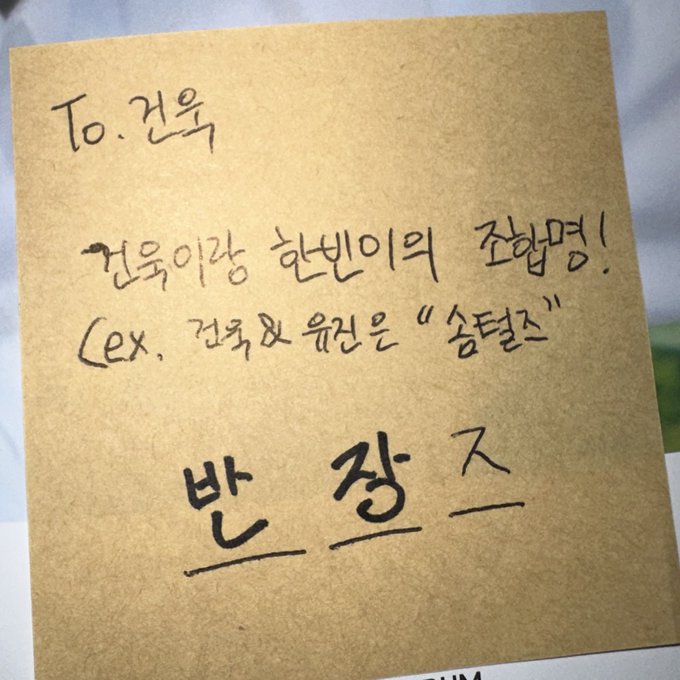 To. 건욱
건욱이랑 한빈이의 조합명!
(ex. 건욱&유진은 "솜털즈"
반 장 즈